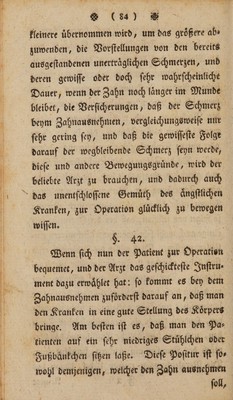 ❉ (84) ❉
kleinere übernommen wird, um das größere ab-
zuwenden, die Vorstellungen von den bereits
ausgestandenen unerträglichen Schmerzen, und
deren gewisse oder doch sehr wahrscheinliche
Dauer, wenn der Zahn noch länger im Munde
bleibet, die Versicherungen, daß der Schmerz
beym Zahnausnehmen, vergleichungsweise nur
sehr gering sey, und daß die gewisseste Folge
darauf der wegbleibende Schmerz seyn werde,
diese und andere Bewegungsgründe, wird der
beliebte Arzt zu brauchen, und dadurch auch
das unentschlossene Gemüth des ängstlichen
Kranken, zur Operation glücklich zu bewegen
wissen.
§. 42.
Wenn sich nun der Patient zur Operation
bequemet, und der Arzt das geschickteste Instru-
ment dazu erwählet hat: so kommt es bey dem
Zahnausnehmen zuförderst darauf an, daß man
den Kranken in eine gute Stellung des Körpers
bringe. Am besten ist es, daß man den Pa-
tienten auf ein sehr niedriges Stühlchen oder
Fußbänkchen sitzen laße. Diese Positur ist so-
wohl demjenigen, welcher den Zahn ausnehmen
soll,